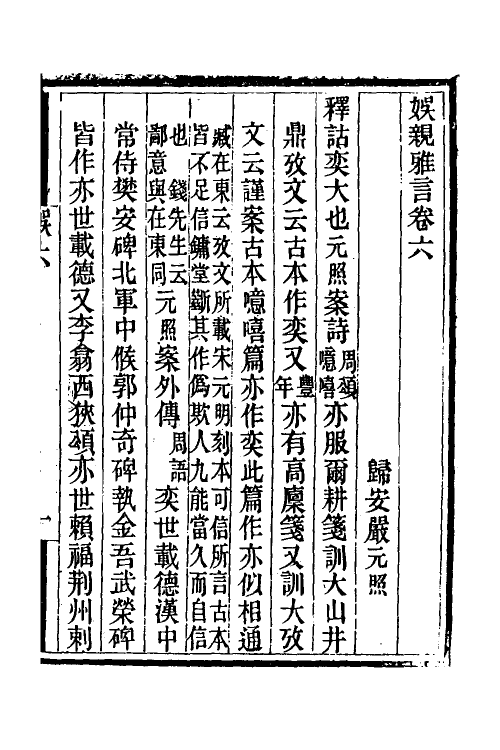 娛親雅言卷六
歸安嚴元照
釋詁奕大也元照案詩周頌噫嘻亦服爾耕箋訓大山井
鼎攷文云古本作奕又豐年亦有高廩箋又訓大攷
文云謹案古本噫嘻篇亦作奕此篇作亦似相通
臧在東云攷文所載宋元明刻本可信所言古本
皆不足信鏞堂斷其作僞欺人九能當久而自信
也　錢先生云
鄙意與在東同元照案外傳周語奕世載德漢中
常侍樊安碑北軍中候郭仲奇碑執金吾武榮碑
皆作亦世載德又李翕西狹頌亦世賴福荆州刺